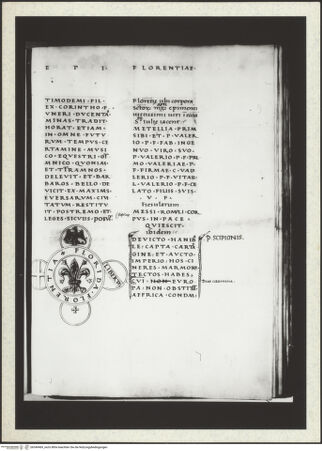 E T I
FLORENTIAE
TIMODEMI FIL
EX CORINTHO F
VNERI DVCENTA
MINAS TRADIT
HORAT ETIAM
IN OMNE FVTV
RVM TEMPVS CE
RTAMINE MVSI
CO EQVESTRI GI
MNICO QVONIA
ET TIRAMNOS
DELEVIT ET BAR
BAROS BELLO DE
VICIT EX MAXIMIS
EVERSARVM CIVI
TATVM RESTITV
IT POSTREMO ET
LEGES SICVLIS POSVIT
Florentię ubi corpora
iacent
METELLIA PRIM
SIBI ET P VALER
IO P F FAB INGE
NVO VIRO SVO
P VALERIO P F PRI
MO VALERIAE P
F FIRMAE C VAL
ERIO P F VITAL
L VALERIO P F CE
LATO FILIIS SVIS
V P
Item iterum
MESSI ROMVLI COR
PVS IN PACE
QVIESCIT
ibidem
DEVICTO HANIB
LE CAPTA CART
GINE ET AVCTO
IMPERIO HOS CI
NERES MARMORE
TECTOS HABES
CVI NON EVRO
PA NON OBSTITIT
AFFRICA CONDAM
P. SCIPIONIS